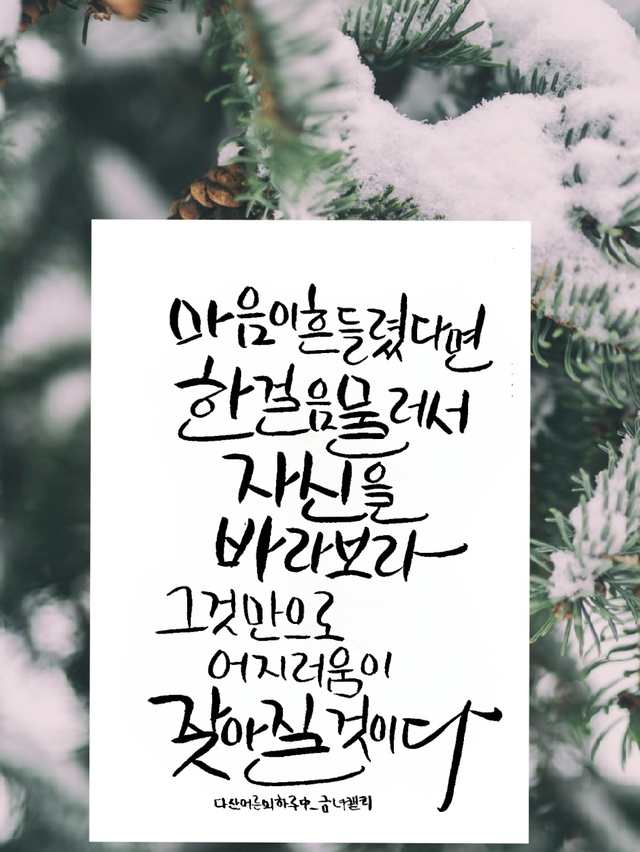 마음이흔들렸다면
한걸음물러서
자신을
바라보라
그것만으로
어지러움이
잦아질것이다
다산어른의하루中_금녀캘리